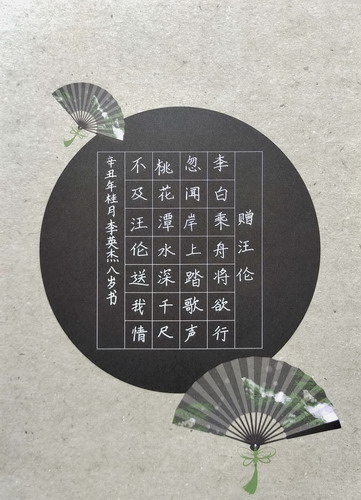 赠汪伦
李白乘舟将欲行
忽闻岸上踏歌声
桃花潭水深千尺
不及汪伦送我情
辛丑年桂月李英杰八岁书